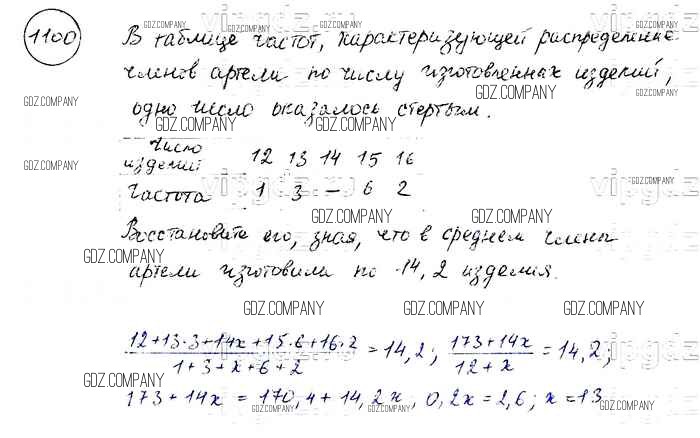 1100
В таблице частот, характеризующей распределение
членов артели по числу изготовленных изделий,
одно число оказалось стертым.
Число
изделий 12 13 14 15 16
Частота 1 3 – 6 2
Восстановите его, зная, что в среднем члены
артели изготовили по 14,2 изделия.
12+13·3+14x+15·6+16·2 / 1+3+x+6+2 = 14,2; 173+14x / 12+x = 14,2;
173+14x = 170,4+14,2x, 0,2x=2,6; x=13
GDZ.COMPANY
vipgdz.ru